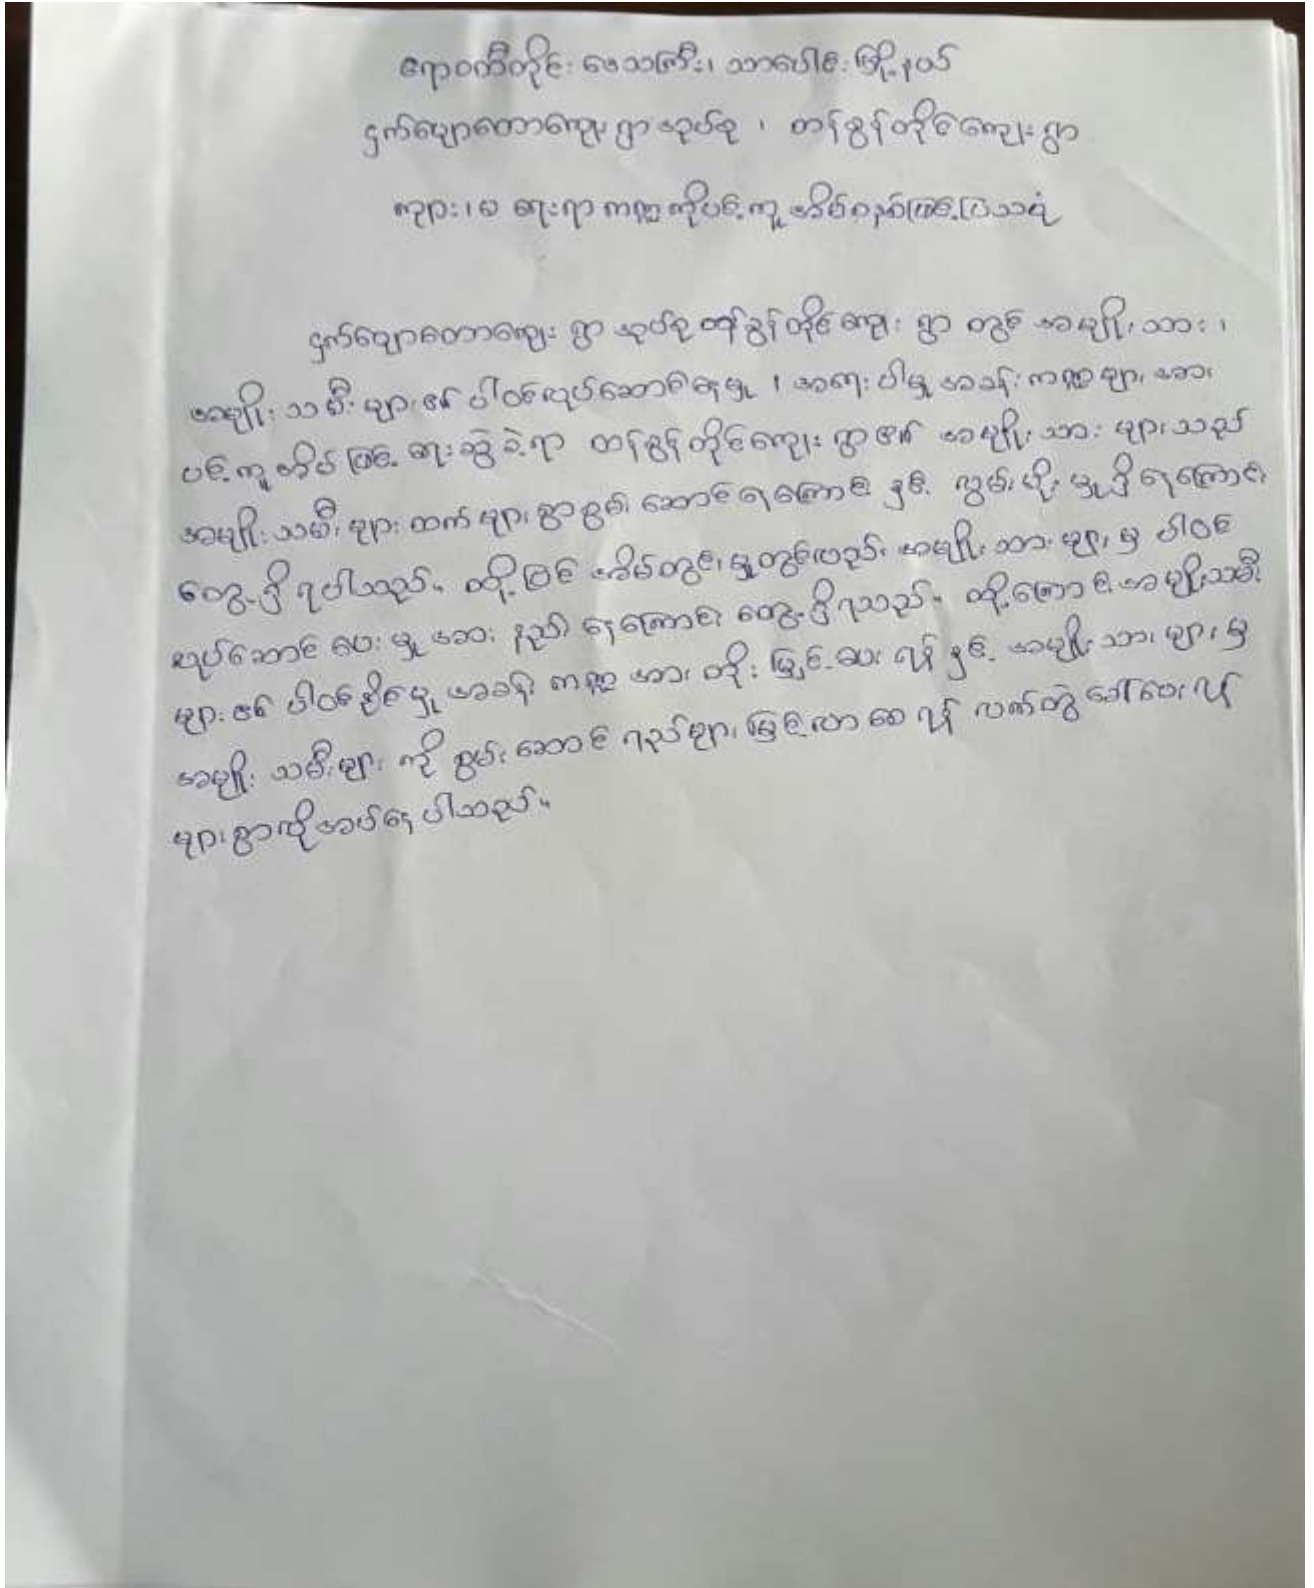 ဧရာဝတီတိုင်းဒေသကြီး၊ သာပေါင်းမြို့နယ်
ငှက်ပျောတောကျေးရွာအုပ်စု ၊ တန်ခွန်တိုင်ကျေးရွာ
ကျား၊မ ရေးရာ ကဏ္ဍကိုပင့်ကူအိမ်စနစ်ဖြင့်ပြသပုံ
ငှက်ပျောတောကျေးရွာအုပ်စု တန်ခွန်တိုင်ကျေးရွာ တွင် အမျိုးသား ၊
အမျိုးသမီးများ၏ ပါဝင်လုပ်ဆောင်နေမှု ၊ အရေးပါမှု အခန်းကဏ္ဍများ အား
ပင့်ကူအိမ်ဖြင့် ရေးဆွဲခဲ့ရာ တန်ခွန်တိုင်ကျေးရွာ၏ အမျိုးသားများသည်
အမျိုးသမီးများထက် များစွာစွမ်းဆောင်ရကြောင်း နှင့် လွှမ်းမိုးမှုရှိရကြောင်း
တွေ့ရှိရပါသည်။ ထို့ပြင် အိမ်တွင်းမှုတွင်လည်း အမျိုးသားများမှ ပါဝင်
လုပ်ဆောင်ပေးမှု အား နည်းနေကြောင်း တွေ့ရှိရသည်။ ထို့ကြောင့်အမျိုးသမီး
များ၏ ပါဝင်နိုင်မှု အခန်းကဏ္ဍ အား တိုးမြှင့်ပေးရန် နှင့် အမျိုးသားများမှ
အမျိုးသမီးများ ကို စွမ်းဆောင်ရည်များမြင့်လာစေရန် လက်တွဲခေါ်ပေးရန်
များစွာလိုအပ်နေပါသည်။